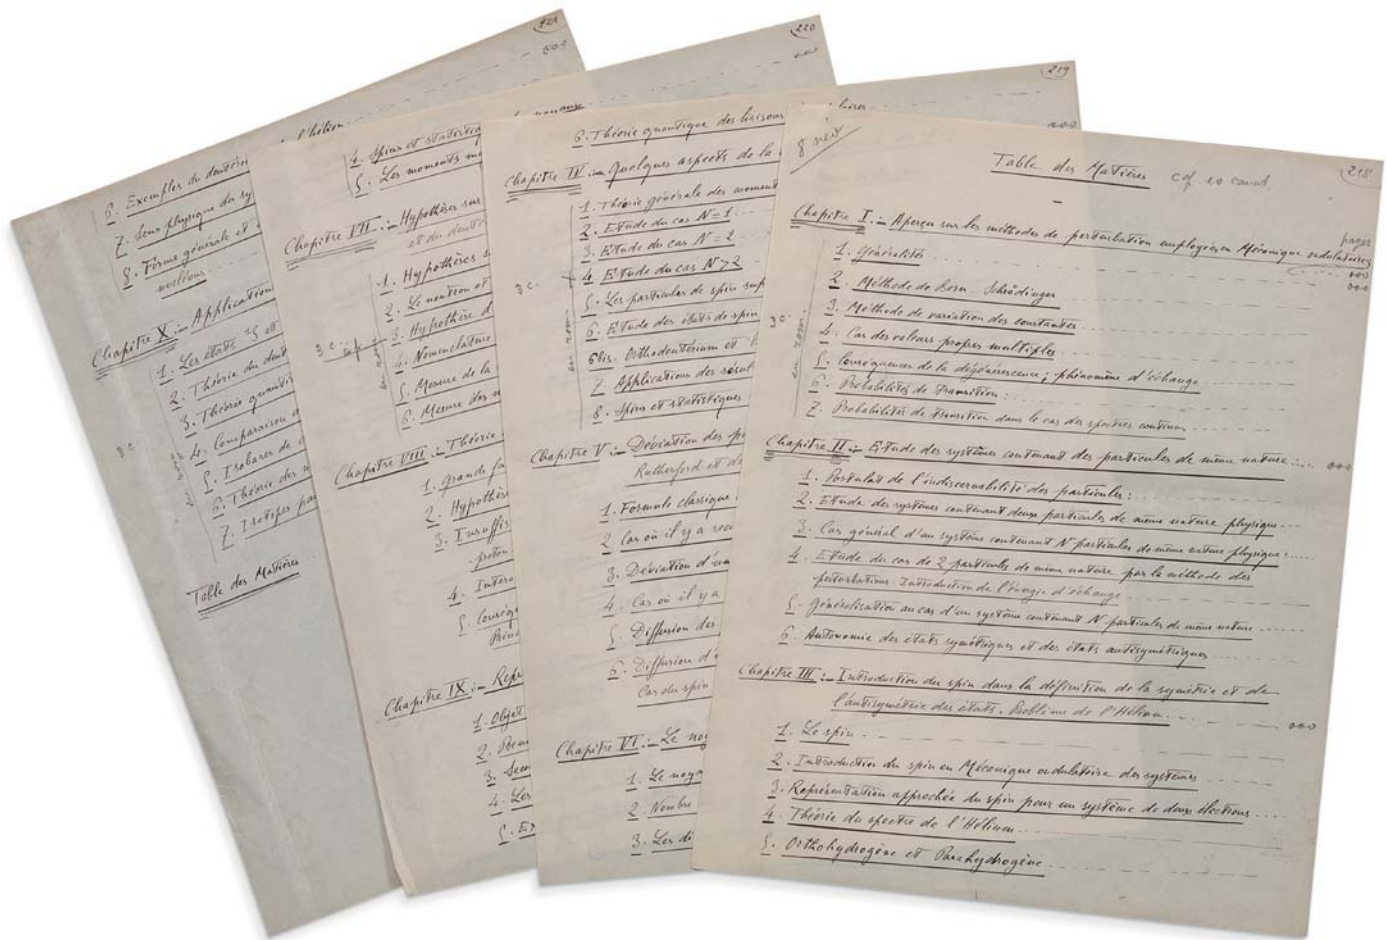 221
000
l'hélion
6. Exemples du deutér
7. Sens physique des sy
8. Forme générale et
nucléons
Chapitre X :- Application
1. Les états S et
2. Théorie du deut
3. Théorie quanti
4. Comparaison d
5. Isobares de
6. Théorie des n
7. Isotopes pa
3 c
Table des Matières
220
000
4. Spins et statistiq
5. Les moments ma
noyaux
Chapitre VII :- Hypothèses sur
et du deuté
1. Hypothèses s
2. Le neutron et
3. Hypothère d
4. Nomenclature
5. Mesure de la
6. Mesure des m
3 c.
Chapitre VIII :- Théorie
1. Grands fa
2. Hypothès
3. Insuffis
proton
4. Intera
5. Conséqu
Prin
Chapitre IX :- Repr
1. Objet
2. Prem
3. Seco
4. Les
5. Ex
219
000
6. Théorie quantique des liaisons
Chapitre IV :- Quelques aspects de la
1. Théorie générale des moment
2. Etude du cas N = 1
3. Etude du cas N = 2
4. Etude du cas N > 2
5. Les particules de spin sup
6. Etude des états de spin
6bis. Orthodeutérium et
7. Applications des résul
8. Spins et statistiques
3 c.
Chapitre V :- Déviation des p
Rutherford et de
1. Formule classique
2 Cas où il y a
3. Déviation d'un
4. Cas où il y a
5. Diffusion des
6. Diffusion d'
Cas du spin
Chapitre VI :- Le noy
1. Le noya
2. Nombre
3. Les di
218
Table des Matières
Chapitre I :- Aperçu sur les méthodes de perturbation employées en Mécanique ondulatoire
pages
000
1. Généralités
000
2. Méthode de Born - Schrödinger
3. Méthode de variation des constantes
4. Cas des valeurs propres multiples
5. Conséquences de la dégénérescence ; phénomène d'échange
6. Probabilités de transition :
7. Probabilités de transition dans le cas des spectres continus
3 c.
en rom.
Chapitre II :- Etude des systèmes contenant des particules de même nature : 000
1. Postulat de l'indiscernabilité des particules :
2. Etude des systèmes contenant deux particules de même nature physique
3. Cas général d'un système contenant N particules de même nature physique :
4. Etude du cas de 2 particules de même nature par la méthode des
perturbations. Introduction de l'énergie d'échange
5. Généralisation au cas d'un système contenant N particules de même nature
6. Autonomie des états symétriques et des états antisymétriques
Chapitre III :- Introduction du spin dans la définition de la symétrie et de
l'antisymétrie des états. Problème de l'Hélium. 000
1. Le spin
2. Introduction du spin en Mécanique ondulatoire des systèmes
3. Représentation approchée du spin pour un système de deux électrons
4. Théorie du spectre de l'Hélium
5. Orthohydrogène et Parahydrogène